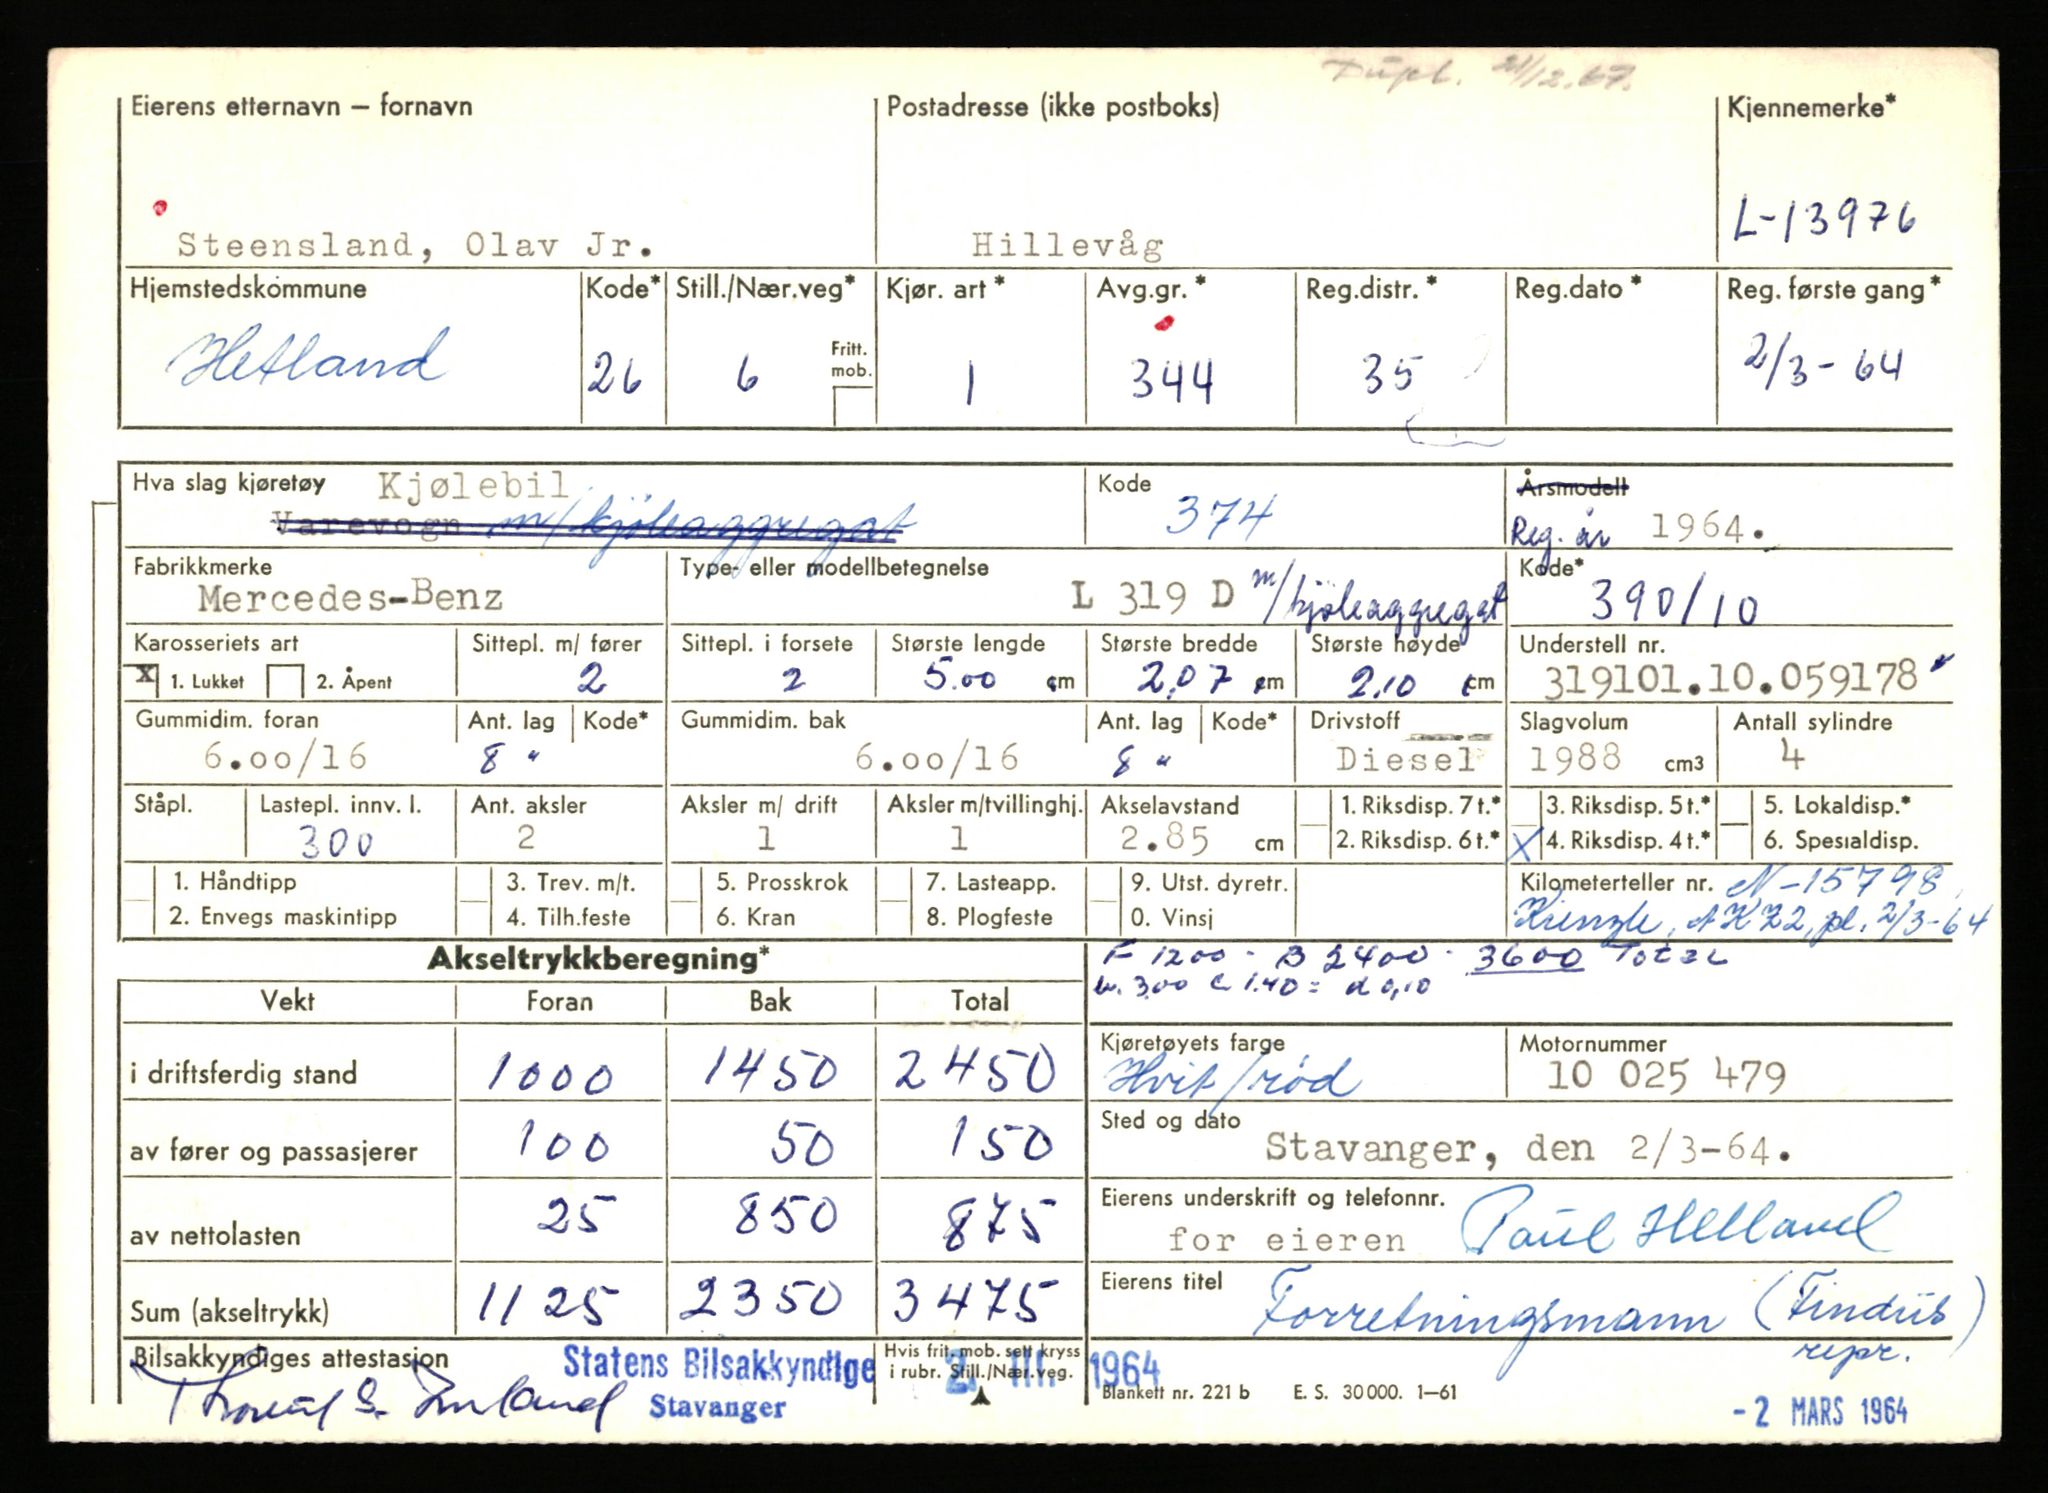 Dupl. 21/12.67.
Eierens etternavn – fornavn
Postadresse (ikke postboks)
Kjennemerke*
Steensland, Olav Jr.
Hillevåg
L-13976
Hjemstedskommune
Kode*
Still./Nær.veg*
Kjør. art*
Avg.gr.*
Reg.distr.*
Reg.dato*
Reg. første gang*
Hetland
26
6
Fritt. mob.
1
344
35
2/3-64
Hva slag kjøretøy Kjølebil
Varevogn m/kjøleaggregat
Kode 374
Årsmodell
Reg. år 1964.
Fabrikkmerke
Mercedes-Benz
Type- eller modellbetegnelse
L 319 D m/kjøleaggregat
Kode*
390/10
Karosseriets art
x 1. Lukket 2. Åpent
Sittepl. m/ fører
2
Sittepl. i forsete
2
Største lengde
5.00 cm
Største bredde
2.07 cm
Største høyde
2.10 cm
Understell nr.
319101.10.059178
Gummidim. foran
6.00/16
Ant. lag
8 "
Kode*
Gummidim. bak
6.00/16
Ant. lag
8 "
Kode*
Drivstoff
Diesel
Slagvolum
1988 cm3
Antall sylindre
4
Ståpl.
Lastepl. innv. l.
300
Ant. aksler
2
Aksler m/ drift
1
Aksler m/tvillinghj.
1
Akselavstand
2.85 cm
1. Riksdisp. 7 t.*
2. Riksdisp. 6 t.*
3. Riksdisp. 5 t.*
X 4. Riksdisp. 4 t.*
5. Lokaldisp.*
6. Spesialdisp.
1. Håndtipp
2. Envegs maskintipp
3. Trev. m/t.
4. Tilh.feste
5. Prosskrok
6. Kran
7. Lasteapp.
8. Plogfeste
9. Utst. dyretr.
0. Vinsj
Kilometerteller nr. N-15798,
Kienzle, AKZ2, pl. 2/3-64
Akseltrykkberegning*
F 1200 - B 2400 - 3600 Total
b. 3.00 c 1.40 = d 0,10
Vekt Foran Bak Total
i driftsferdig stand 1000 1450 2450
av fører og passasjerer 100 50 150
av nettolasten 25 850 875
Sum (akseltrykk) 1125 2350 3475
Kjøretøyets farge
Hvit/rød
Motornummer
10 025 479
Sted og dato
Stavanger, den 2/3-64.
Eierens underskrift og telefonnr.
for eieren Paul Helland
Eierens titel
Forretningsmann (Findus)
repr.
Bilsakkyndiges attestasjon
Statens Bilsakkyndige
Stavanger
Hvis frit. mob. sett kryss
i rubr. Still./Nær.veg.
2. III 1964
Blankett nr. 221 b E. S. 30000. 1–61
-2 MARS 1964